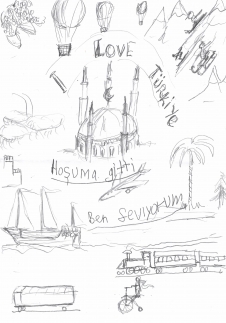 I LOVE TÜRKİYE
Hoşuma gitti
Ben Seviyorum